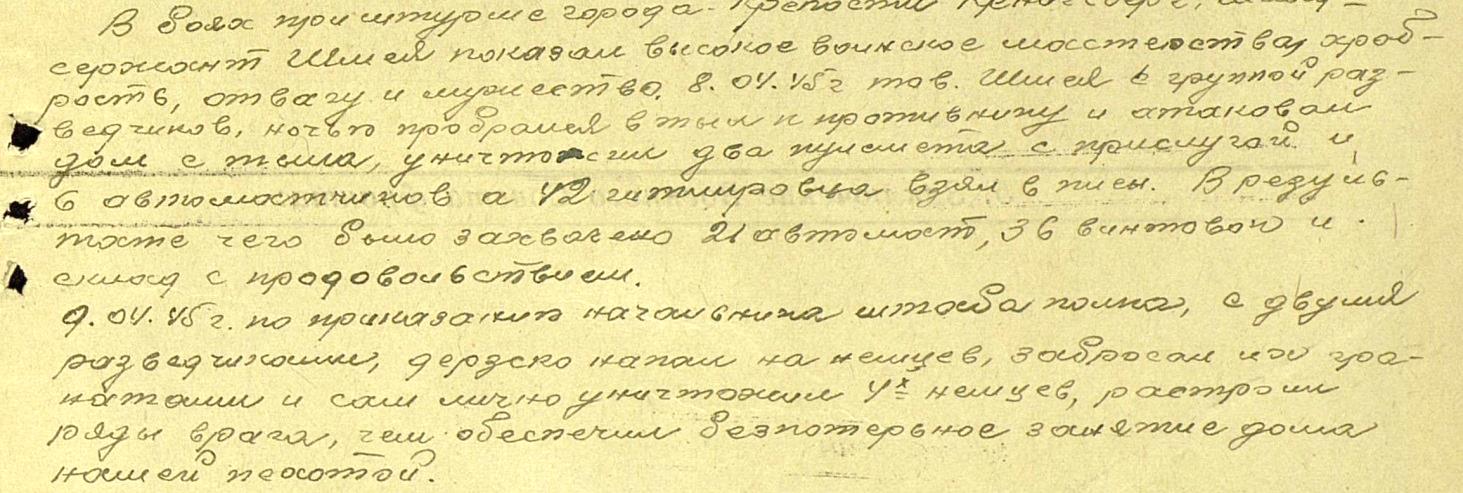 В боях при штурме города-крепости Кенигсберг,
сержант Шмея показал высокое воинское мастерства, хроб-
рость, отвагу и мужество. 8.04.45г тов. Шмея с группой раз-
ведчиков, ночью пробрался в тыл к противнику и атаковал
дом с тыла, уничтожил два пулемета с прислугой и
6 автоматчиков а 42 гитлеровца взял в плен. В резуль-
тате чего было захвачено 21 автомат, 36 винтовок и
склад с продовольствием.
9.04.45г. по приказанию начальника штаба полка, с двумя
разведчиками, дерзско напал на немцев, забросал их гра-
натами и сам лично уничтожил 4х немцев, растроил
ряды врага, чем обеспечил безпотерьное занятие дома
нашей пехотой.